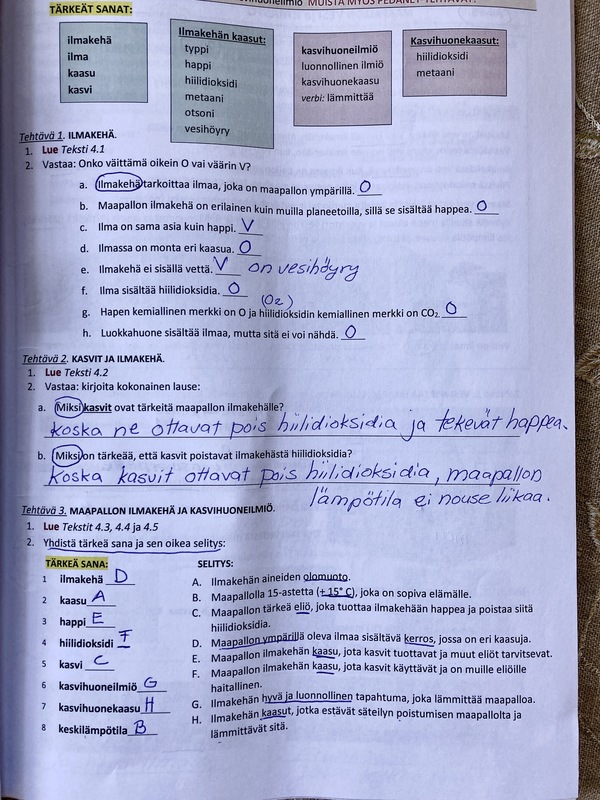 MUISTA MYÖS PEDANET TEHTÄVÄT!
TÄRKEÄT SANAT:
ilmakehä
ilma
kaasu
kasvi
Ilmakehän kaasut:
typpi
happi
hiilidioksidi
metaani
otsoni
vesihöyry
kasvihuoneilmiö
luonnollinen ilmiö
kasvihuonekaasu
verbi: lämmittää
Kasvihuonekaasut:
hiilidioksidi
metaani
Tehtävä 1. ILMAKEHÄ.
1. Lue Teksti 4.1
2. Vastaa: Onko väittämä oikein O vai väärin V?
a. Ilmakehä tarkoittaa ilmaa, joka on maapallon ympärillä. O
b. Maapallon ilmakehä on erilainen kuin muilla planeetoilla, sillä se sisältää happea. O
c. Ilma on sama asia kuin happi. V
d. Ilmassa on monta eri kaasua. O
e. Ilmakehä ei sisällä vettä. V on vesihöyry
f. Ilma sisältää hiilidioksidia. O
(O2)
g. Hapen kemiallinen merkki on O ja hiilidioksidin kemiallinen merkki on CO2. O
h. Luokkahuone sisältää ilmaa, mutta sitä ei voi nähdä. O
Tehtävä 2. KASVIT JA ILMAKEHÄ.
1. Lue Teksti 4.2
2. Vastaa: kirjoita kokonainen lause:
a. Miksi kasvit ovat tärkeitä maapallon ilmakehälle?
koska ne ottavat pois hiilidioksidia ja tekevät happea.
b. Miksi on tärkeää, että kasvit poistavat ilmakehästä hiilidioksidia?
Koska kasvit ottavat pois hiilidioksidia, maapallon
lämpötila ei nouse liikaa.
Tehtävä 3. MAAPALLON ILMAKEHÄ JA KASVIHUONEILMIÖ.
1. Lue Tekstit 4.3, 4.4 ja 4.5
2. Yhdistä tärkeä sana ja sen oikea selitys:
TÄRKEÄ SANA:
1 ilmakehä D
2 kaasu A
3 happi E
4 hiilidioksidi F
5 kasvi C
6 kasvihuoneilmiö G
7 kasvihuonekaasu H
8 keskilämpötila B
SELITYS:
A. Ilmakehän aineiden olomuoto.
B. Maapallolla 15-astetta (+ 15° C), joka on sopiva elämälle.
C. Maapallon tärkeä eliö, joka tuottaa ilmakehään happea ja poistaa siitä
hiilidioksidia.
D. Maapallon ympärillä oleva ilmaa sisältävä kerros, jossa on eri kaasuja.
E. Maapallon ilmakehän kaasu, jota kasvit tuottavat ja muut eliöt tarvitsevat.
F. Maapallon ilmakehän kaasu, jota kasvit käyttävät ja on muille eliöille
haitallinen.
G. Ilmakehän hyvä ja luonnollinen tapahtuma, joka lämmittää maapalloa.
H. Ilmakehän kaasut, jotka estävät säteilyn poistumisen maapallolta ja
lämmittävät sitä.